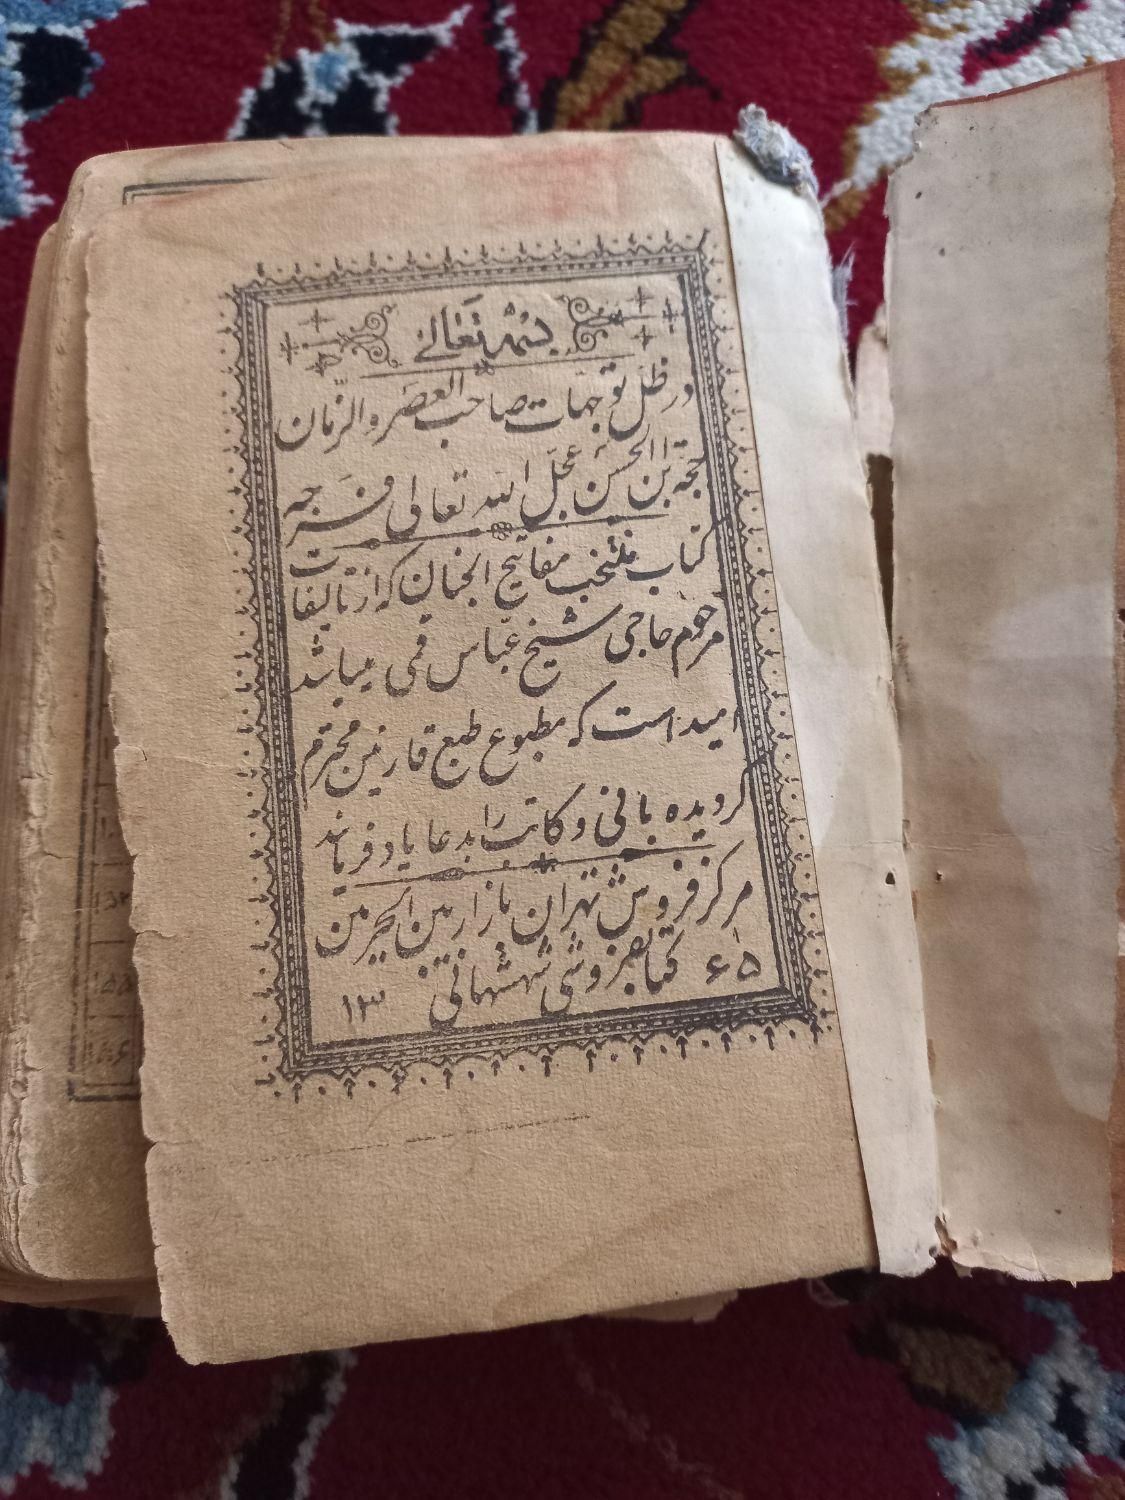 بسمه تعالی
در ظل توجهات صاحب العصر و الزمان
حجة بن الحسن عجل الله تعالی فرجه
کتاب منتخب مفاتیح الجنان که از تالیفات
مرحوم حاجی شیخ عباس قمی میباشد
امید است که مطبوع طبع قارئین محترم
گردیده بانی و کاتب را بدعا یاد فرمایند
مرکز فروش تهران بازار بین الحرمین
کتابفروشی شهشهانی ۱۳۶۵